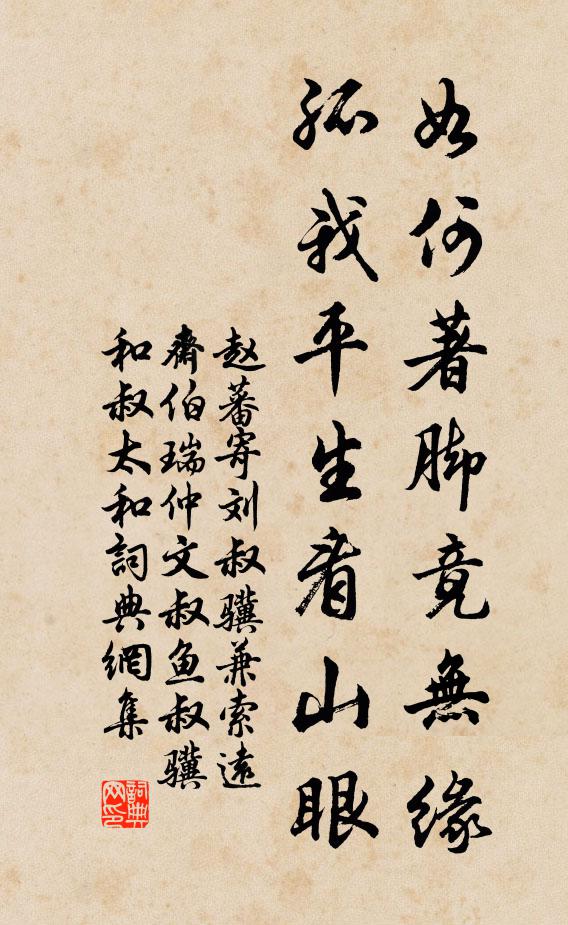 如何著脚竟無緣
孤我平生看山眼
赵蕃寄刘叔骥兼索遠
齋伯瑞仲文叔鱼叔骥
和叔太和詞典網集
詞典網印